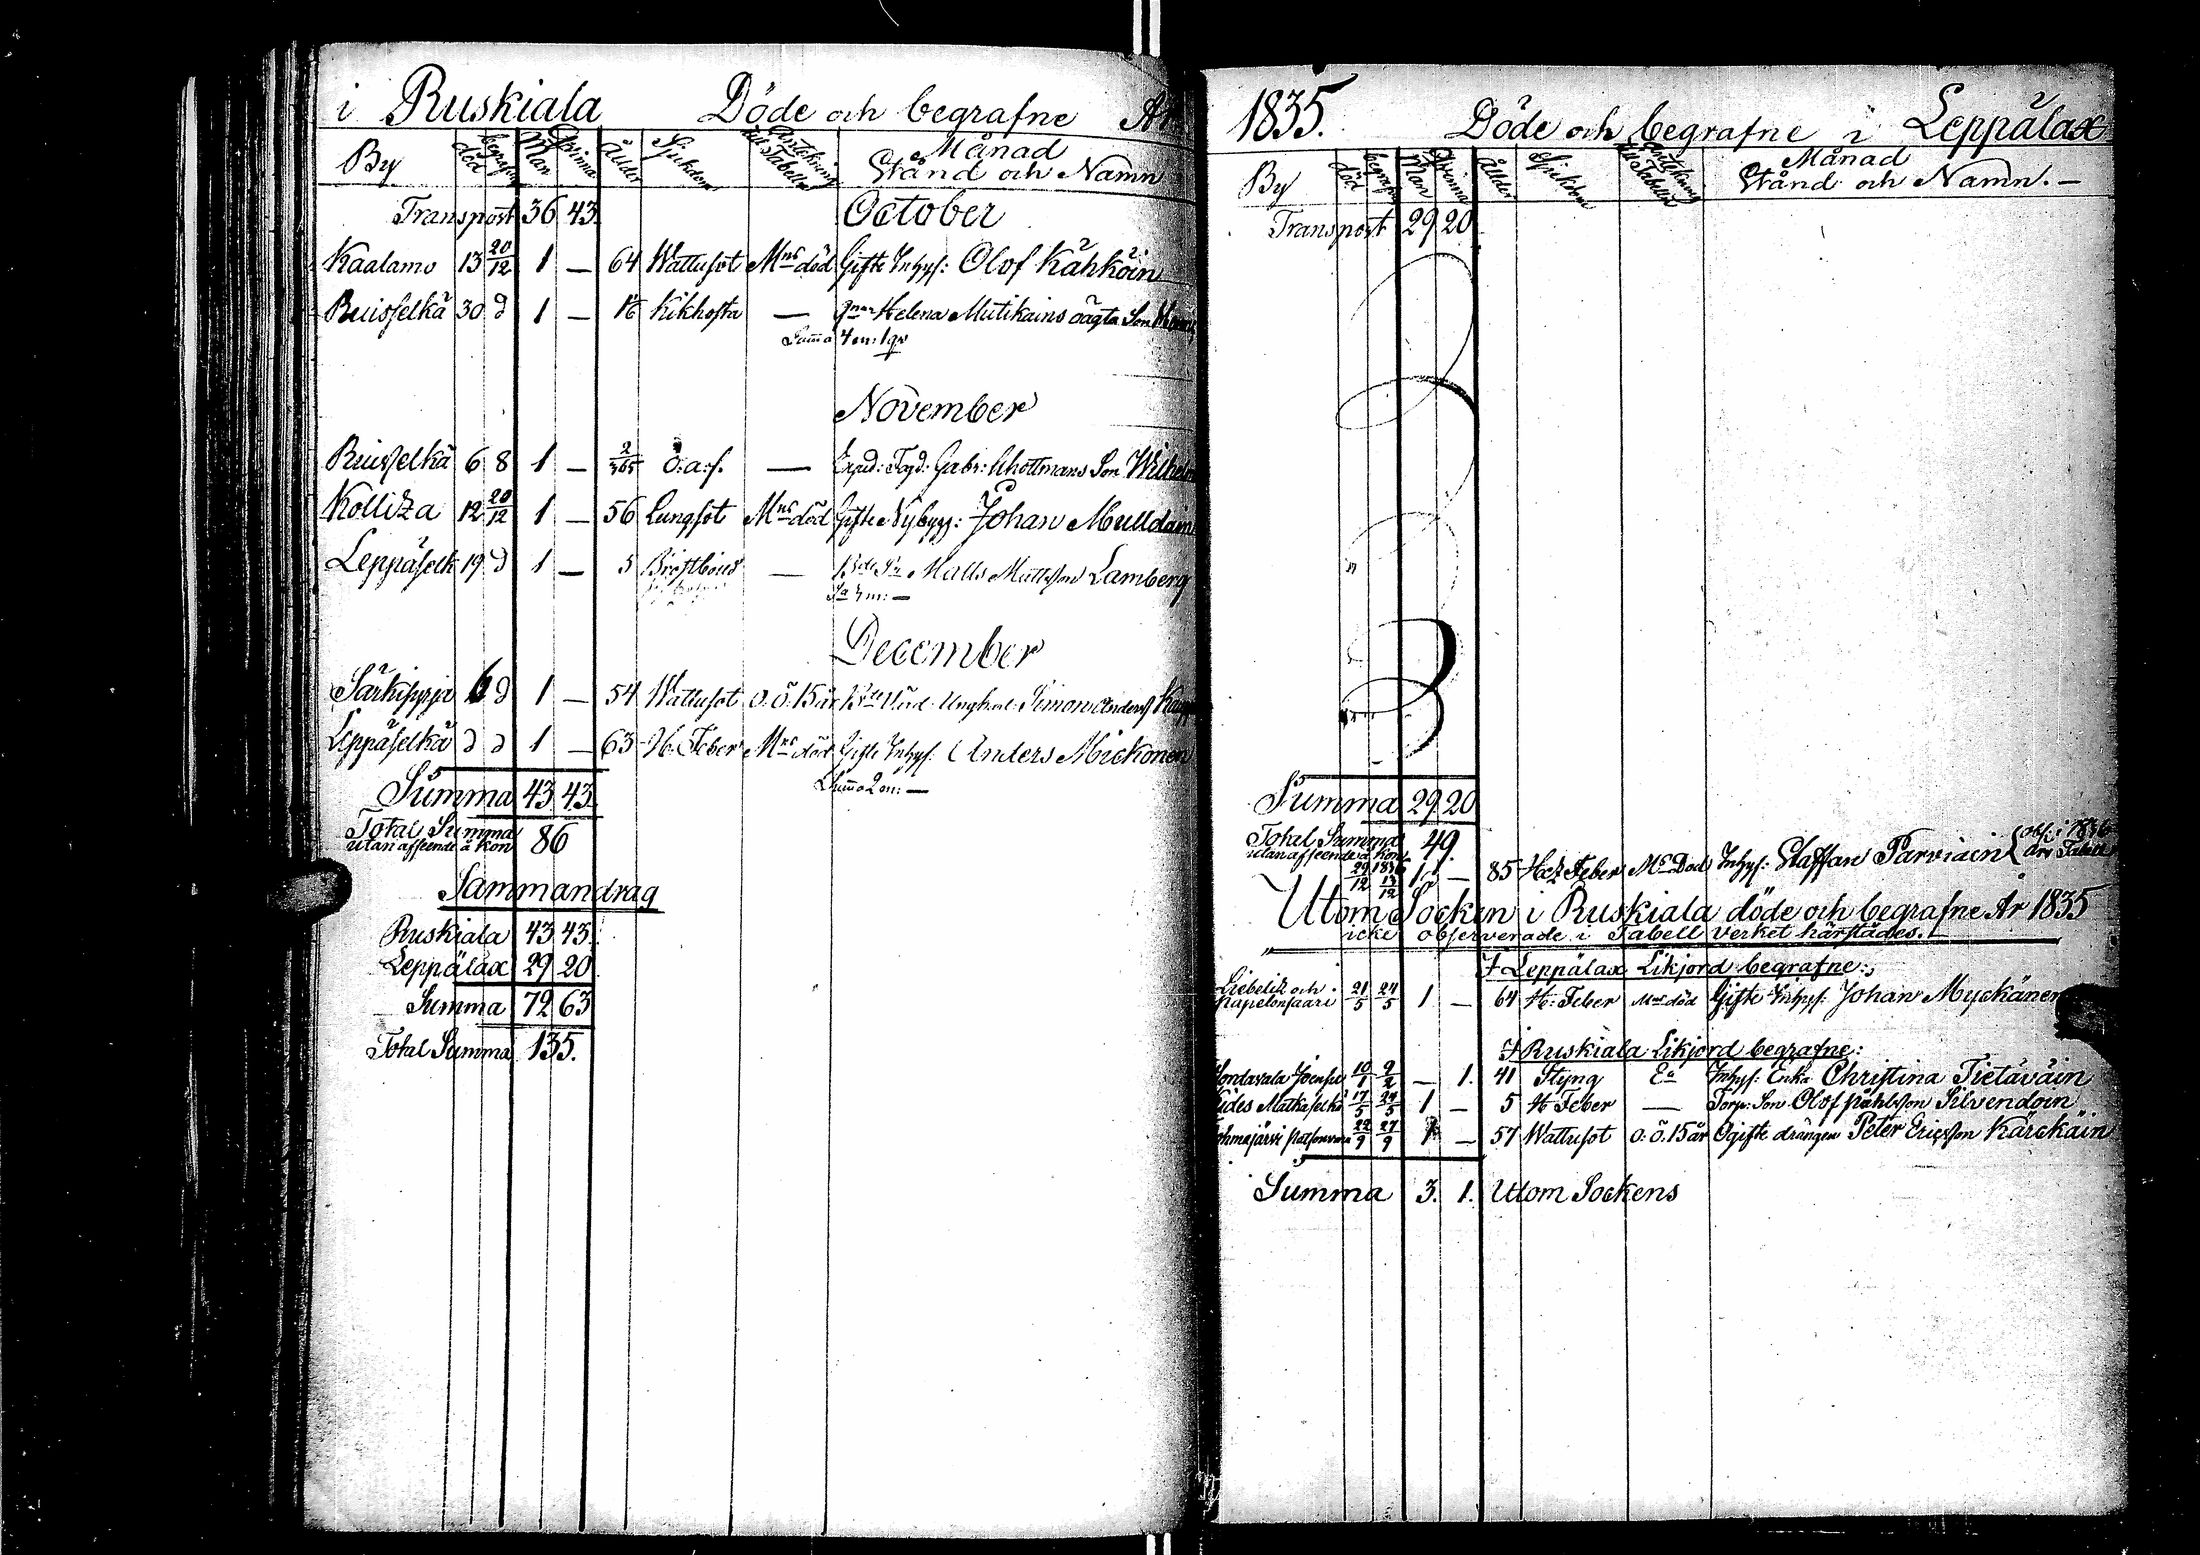 i Ruskiala Döde och begrafne År
By död begrafne Man Qvinna Ålder Sjukdom Anteckning till Tabellen Månad Stånd och Namn
Transport 36 43 October
Kaalamo 13 20/12 1 — 64 Wattusot Mns död Gifte Inhys: Olof Kähköin
Ruisselkä 30 d 1 — Kikhosta — Helena Mutikains oägta Son
Summa 4 m: 1 qv
November
Ruisselkä 6 8 1 — 2/365 O: a: s. — Gabr: Son Wilhelm
Kollitza 12 20/12 1 — 56 Lungsot Mns död Gifte Nybygg: Johan Mulldain
Leppäselk 19 d 1 — 5 — Matts Mattsson Lamberg
Sa 3 m: —
December
Särkisyrja 6 d 1 — 54 Wattusot O. ö. 15 år Simon Anderss
Leppäselkä d d 1 — 63 H. Feber Mns död Gifte Inhys: Anders Mickonen
Summa 2 m: —
Summa 43 43
Total Summa 86
utan afseende å kön
Sammandrag
Ruskiala 43 43.
Leppälax 29 20
Summa 72 63
Total Summa 135.
1835. Döde och begrafne i Leppälax
By död begrafne Man Qvinna Ålder Sjukdom Anteckning till Tabellen Månad Stånd och Namn. —
Transport 29 20
Summa 29 20
Total Summa 49.
utan afseende å kön
— 85 Feber Död Inhys: Staffan Parviain obs: i 1836 års Tabell
Utom Socken i Ruskiala döde och begrafne År 1835
icke observerade i Tabell Verket härstädes.
I Leppälax Likjord begrafne:
Liebelitz och 21/5 24/5 1 — 64 H: Feber Mns död Gifte Inhys: Johan Myckänen
I Ruskiala Likjord begrafne:
10/1 9/2 — 1. 41 Styng Ea Inhys: Enka Christina Tietäväin
Kides Matkaselkä 17/5 24/5 1 — 5 H Feber — Torp: Son Olof Påhlsson Silvendoin
Tohmajärvi 22/9 27/9 1 — 57 Wattusot O. ö. 15 år Ogifte drängen Peter Ericsson Kärckäin
Summa 3. 1. Utom Sockens